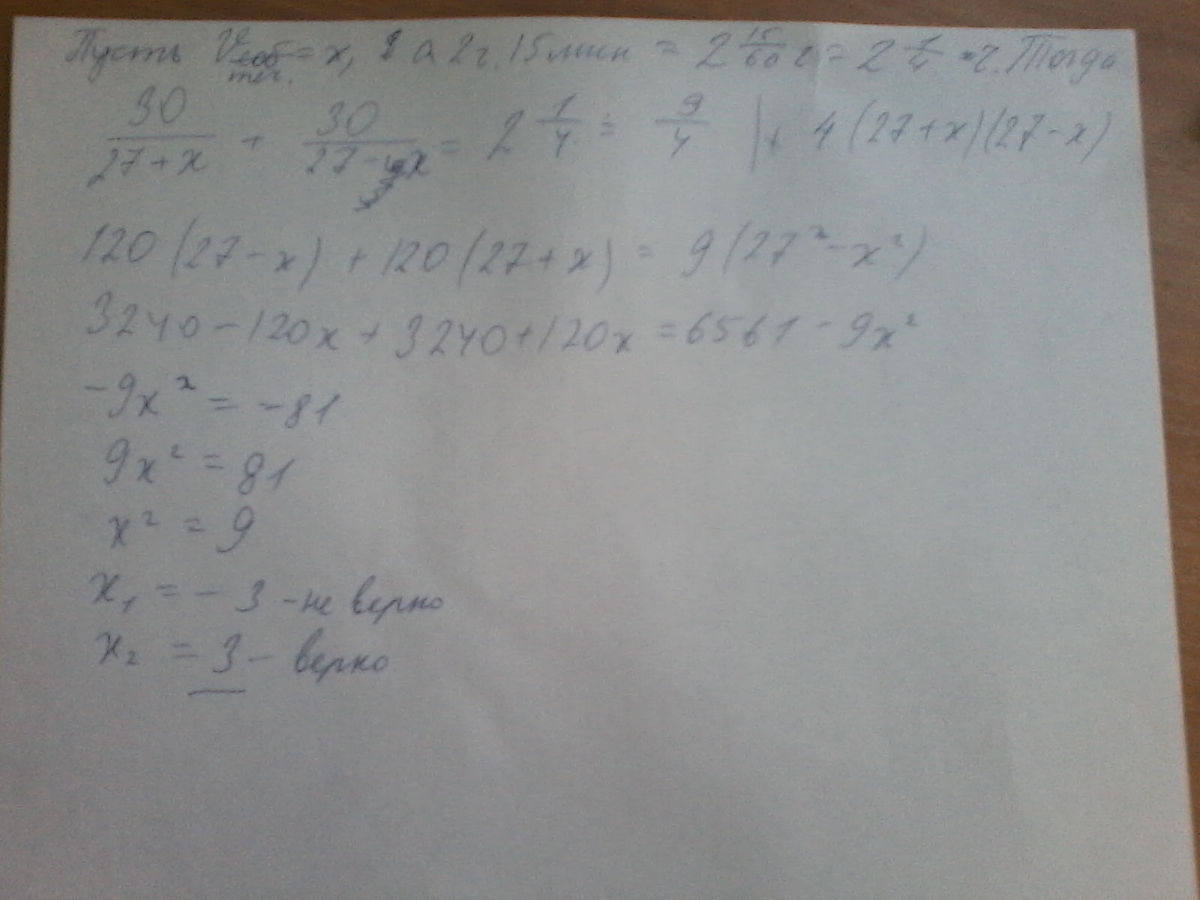 Пусть V теч. = x, а 2ч. 15 мин = 2 15/60 ч = 2 1/4 ч. Тогда
30/(27+x) + 30/(27-x) = 2 1/4 = 9/4 | × 4(27+x)(27-x)
120(27-x) + 120(27+x) = 9(27²-x²)
3240-120x+3240+120x=6561-9x²
-9x²=-81
9x²=81
x²=9
x₁=-3 -не верно
x₂=3- верно